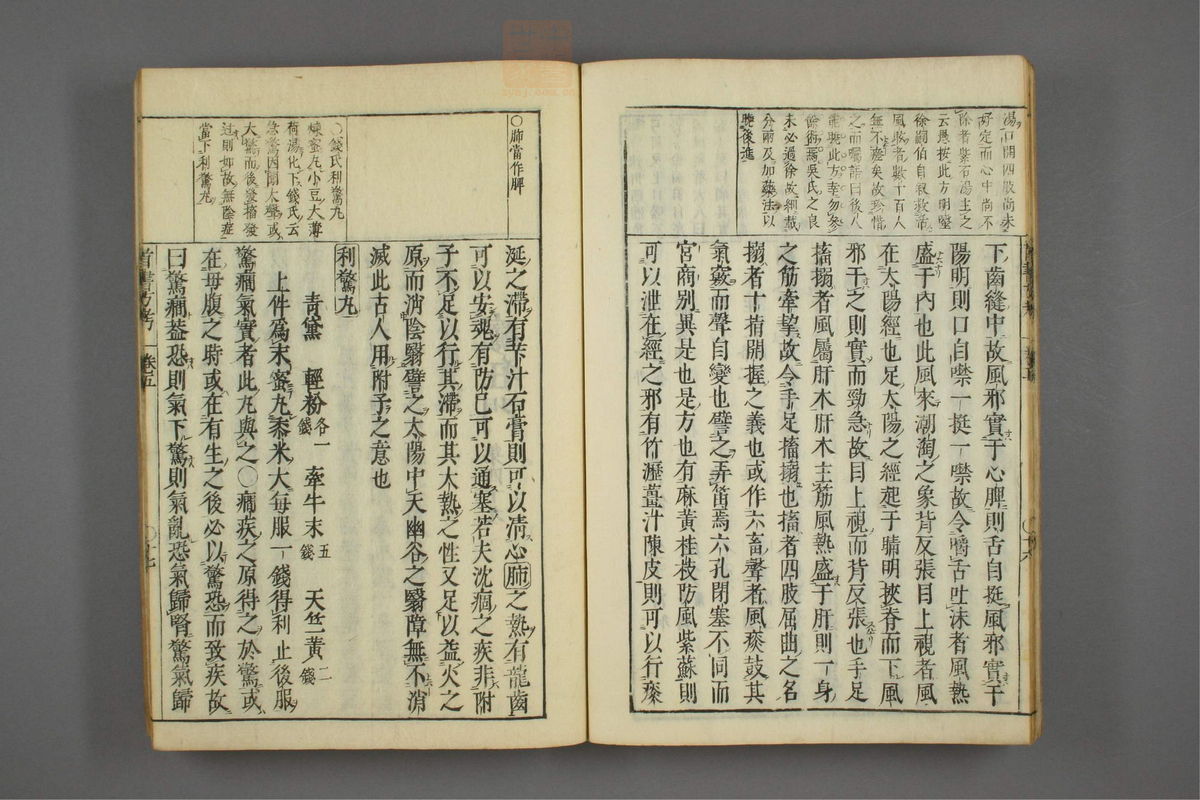 湯口開四肢尚未
安定而心中尚不
除者紫石湯主之
云愚按此方明醫
徐嗣伯自叙救活
風癇者數十百人
無不瘥矣故珍惜
之而囑諾曰後八
未必過徐故細戴
分兩及加藥法以
曉後進
下齒縫中故風邪實于心脾則舌自挺風邪實于
陽明則口自噤一挺一噤故令嚼舌吐沫者風熱
盛于內也此風來潮淘之象背反張目上視者風
在太陽經也足太陽之經起于睛明挾脊而下風
邪干之則實而勁急故目上視而背反張也手足
搐搦者風屬肝木肝木主筋風熱盛于肝則一身
之筋牽掣故令手足搐搦也搐者四肢屈曲之名
搦者十指開握之義也或作六畜聲者風痰鼓其
氣竅而聲自變也譬之弄笛焉六孔閉塞不同而
宮商別異是也是方也有麻黃桂枝防風紫蘇則
可以泄在經之邪有竹瀝薑汁陳皮則可以行痰
〇肺當作脾
涎之滯有苄汁石膏則可以清心肺之熱有龍齒
可以安魂有防已可以通塞若夫沈痼之疾非附
子不足以行其滯而其大熱之性又足以益火之
原而消陰翳譬之太陽中天幽谷之翳障無不消
滅此古人用附子之意也
〇錢氏利驚丸
煉蜜丸小豆大薄
荷湯化下錢氏云
急驚因聞大聲或
大驚而後發搐發
過則如故無陰症
當下利驚丸
利驚丸
青黛 輕粉各一錢 牽牛末五錢 天竺黃二錢
上件為末蜜丸黍米大每服一錢得利止後服
驚癇氣實者此丸與之〇癇疾之原得之於驚或
在母腹之時或在有生之後必以驚恐而致疾故
曰驚癇葢恐則氣下驚則氣亂恐氣歸腎驚氣歸